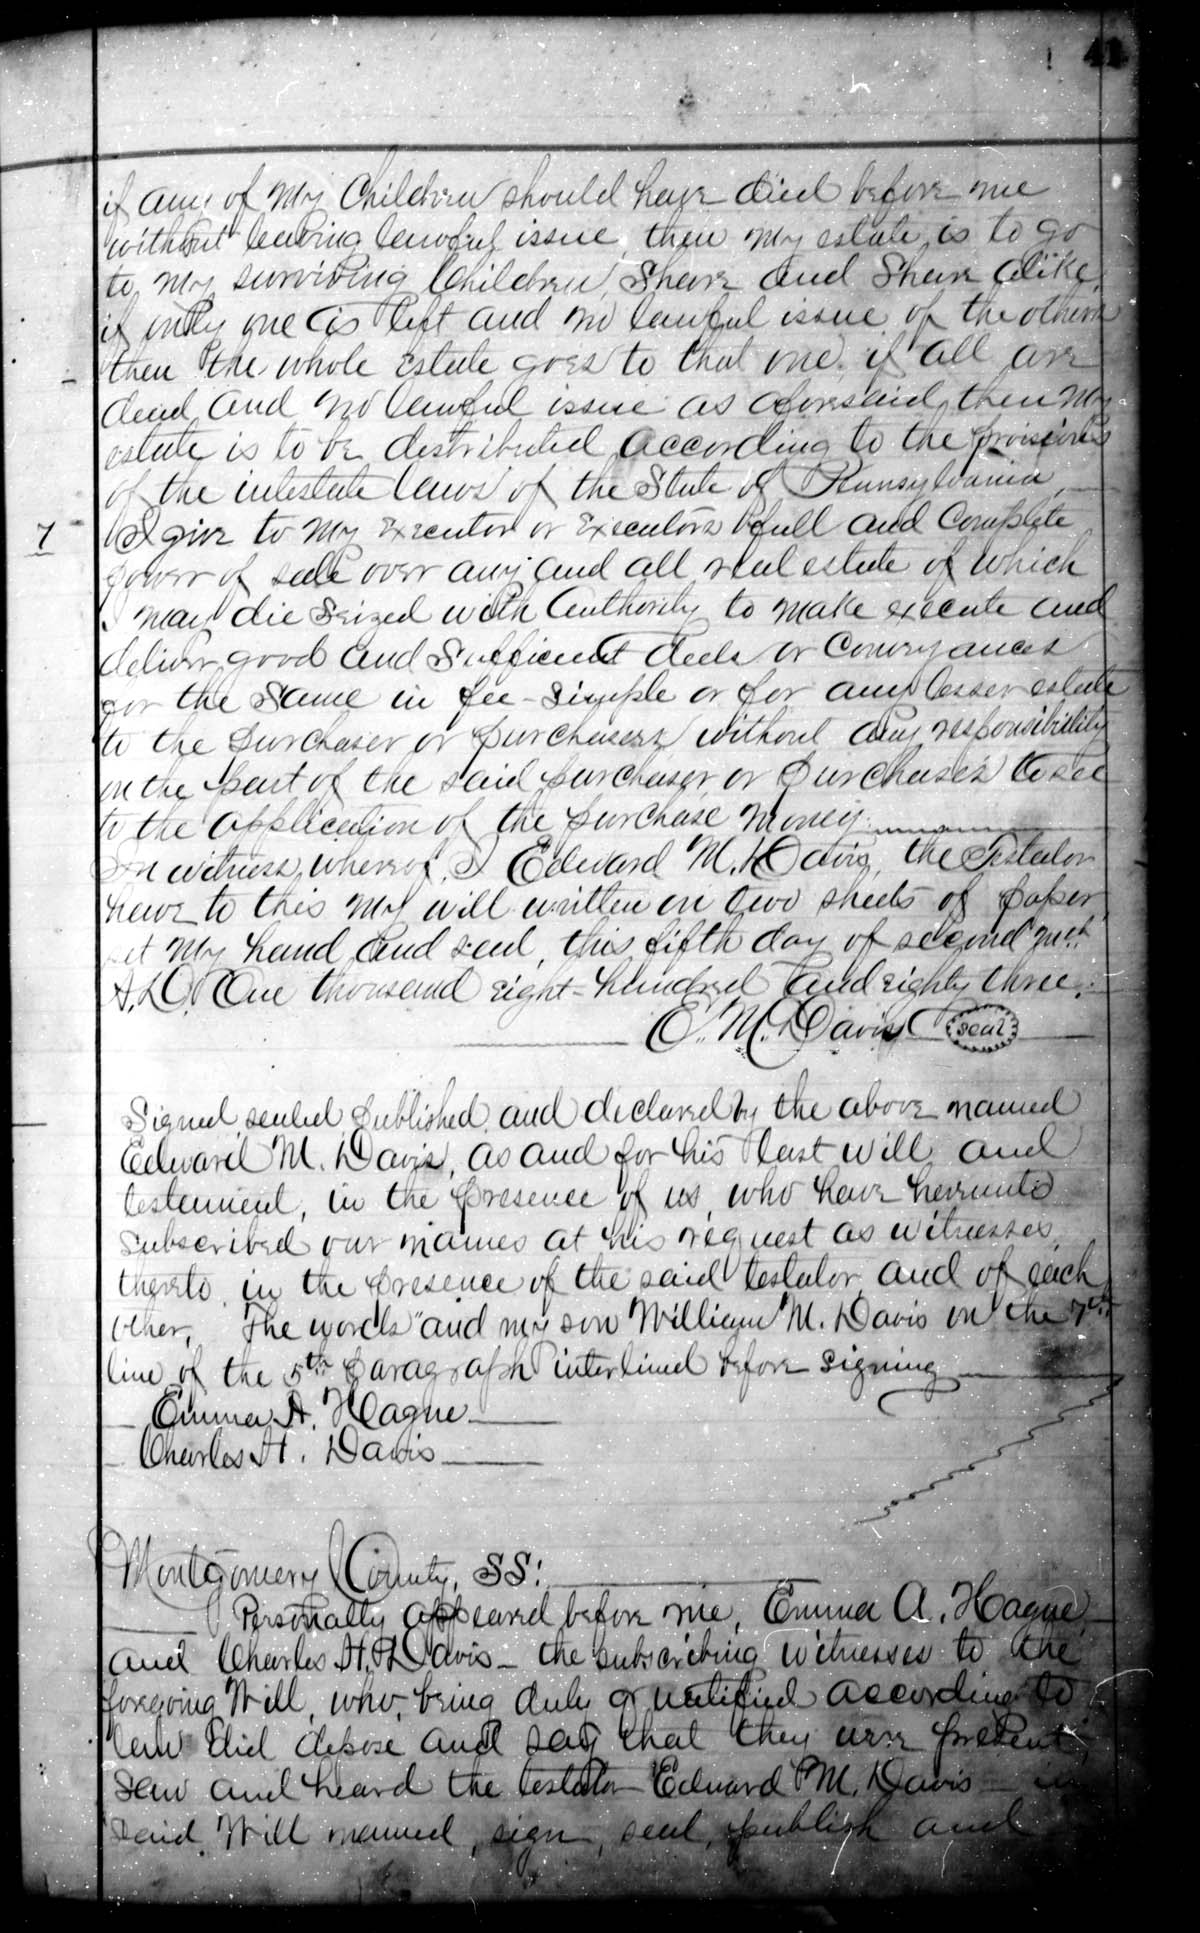 41
if any of my Children should have died before me
without leaving lawful issue, then my estate is to go
to my surviving Children, Share and Share alike,
if only one is left and no lawful issue of the others
then the whole Estate goes to that one, if all are
dead and no lawful issue as aforesaid, then my
estate is to be distributed according to the provisions
of the intestate laws of the State of Pennsylvania
7 I give to my Executor or Executors full and Complete
power of sale over any and all real estate of which
I may die Seized with Authority to make execute and
deliver good and Sufficient deeds or Conveyances
for the Same in fee-Simple or for any lesser estate
to the purchaser or purchasers without any responsibility
on the part of the said purchaser or purchasers to see
to the application of the purchase money.
In witness whereof, I Edward M. Davis, the Testator
have to this my will written on two sheets of paper,
set my hand and seal, this fifth day of second mth
A.D. One thousand eight-hundred and eighty three.
E. M. Davis seal
Signed, sealed published, and declared by the above named
Edward M. Davis, as and for his last will and
testament, in the presence of us, who have hereunto
subscribed our names at his request as witnesses,
thereto, in the presence of the said testator, and of each
other, The words "and my son William M. Davis on the 7th
line of the 5th paragraph interlined before signing
Emma A. Hague
Charles H. Davis
Montgomery County, SS:
Personally appeared before me, Emma A. Hague
and Charles H. Davis - the subscribing witnesses to the
foregoing Will, who, being duly qualified according to
law did depose and say that they were present,
saw and heard the testator Edward M. Davis - in
said Will named, sign, seal, publish and